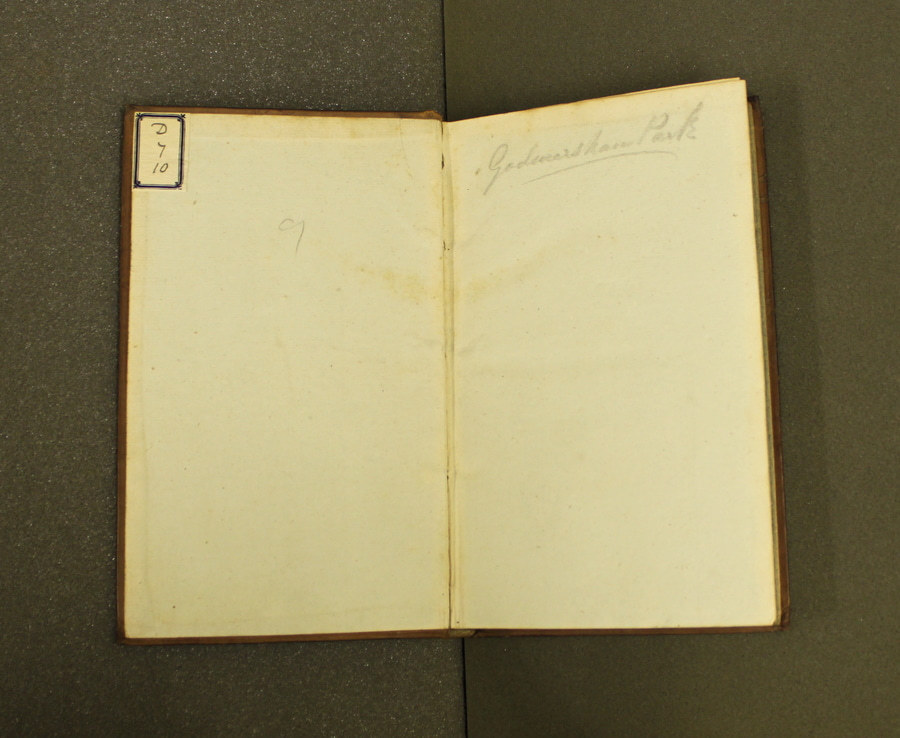 D
7
10
9
Godmersham Park